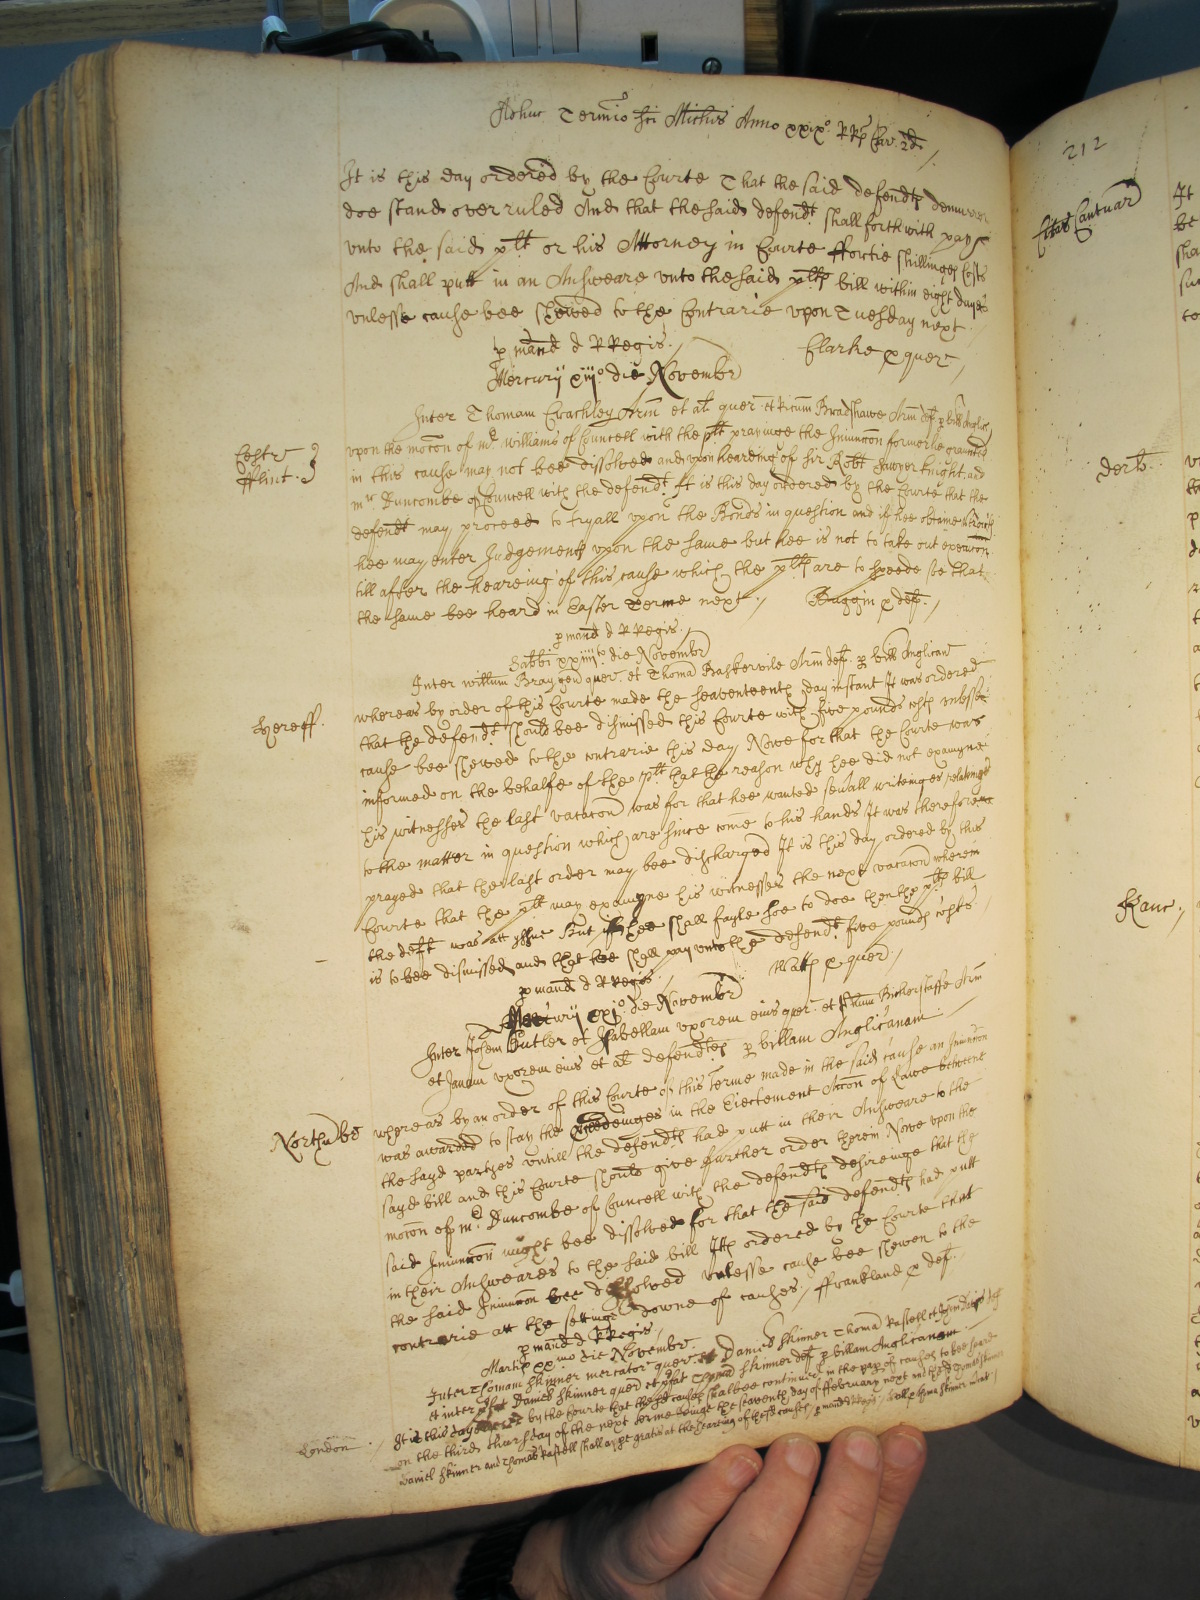 Adhuc Termio Sci Michis Anno xxix° RRs Car 2di
It is this day ordered by the Courte That the said defendts demurrer
doe stand overruled And that the said defendt shall forthwith pay
unto the said plt or his Attorney in Courte ffortie shillinges Costs
And shall putt in an Answeare unto the said plts bill within eight dayes
unlesse cause bee shewed to the Contrarie upon Tuesday next
p mand d RRegis Clarke p quer
Mercurij xiiij° die Novembr
Inter Thomam Crachley Arm et al quer et Ricum Bradshawe Arm def p bill Anglic
Cestr
fflint
upon the mocon of mr Williams of Councell with the plt prayinge the Iniunccon formerlie graunted
in this cause may not bee dissolved and upon heareing of Sir Robt Sawyer knight and
mr Duncombe of Councell with the defendt It is this day ordered by the Courte that the
defendt may proceed to tryall upon the Bonds in question and if hee obtaine
hee may enter Judgements upon the same but hee is not to take out execucon
till after the heareing of this cause which the plts are to speede soe that
the same bee heard in Easter Terme next Buggin p def
p mand d RRegis
Sabbi xxiiijto die Novembr
Inter Willum Bray gen quer et Thoma Baskervile Arm def p bill Anglican
Hereff
whereas by order of this Courte made the seaventeenth day instant It was ordered
that the defendt should bee dismissed this Courte with five pounds costs unlesse
cause bee shewed to the contrarie this day Nowe for that the Courte was
informed on the behalfe of the plt that the reason why hee did not examyne
his witnesses the last vacacon was for that hee wanted sevall writeinges relateinge
to the matter in question which are since come to his hands It was therefore
prayed that the last order may bee discharged It is this day ordered by this
Courte that the plt may examyne his witnesses the next vacacon wherein
the deft was att Issue But if hee shall fayle soe to doe then the plts bill
is to bee dismissed and that hee shall pay unto the defendt five pounds costs
p mand d RRegis Watts p quer
Mercurij xxj° die Novembr
Inter Johem Butler et Isabellam uxorem eius quer et Bickerstaffe Arm
et Janam uxorem eius et al defendtes p billam Anglicanam
Northubr
whereas by an order of this Courte of this Terme made in the said cause an Iniunccon
was awarded to stay the in the Eiectement Accon of Lawe betweene
the sayd partyes untill the defendts had putt in their Answeare to the
sayd bill and this Courte should give further order therein Nowe upon the
mocon of mr Duncombe of Councell with the defendts desireinge that the
said Iniunccon might bee dissolved for that the said defendts had putt
in their Answeares to the said bill Itts ordered by the Courte that
the said Iniunccon bee dissolved unlesse cause bee shewen to the
contrarie att the settinge downe of causes ffrankland p def
p mand d RRegis
Martis xxmo die Novembr
Inter Thomam Skinner mercator quer et Daniel Skinner Thoma Rastell et def
et inter Daniel Skinner quer et Thoma Skinner def p billam Anglicanam
London
It is this day by the Courte that the sd causes shalbee continued in the pap of causes to bee heard
on the third thursday of the next terme beinge the seaventh day of ffebruary next
Daniel Skinner and Thomas Rastell shall appe gratis at the hearing of the sd causes p mand RRegis
212
Civit Cantuar
Derb
Kanc